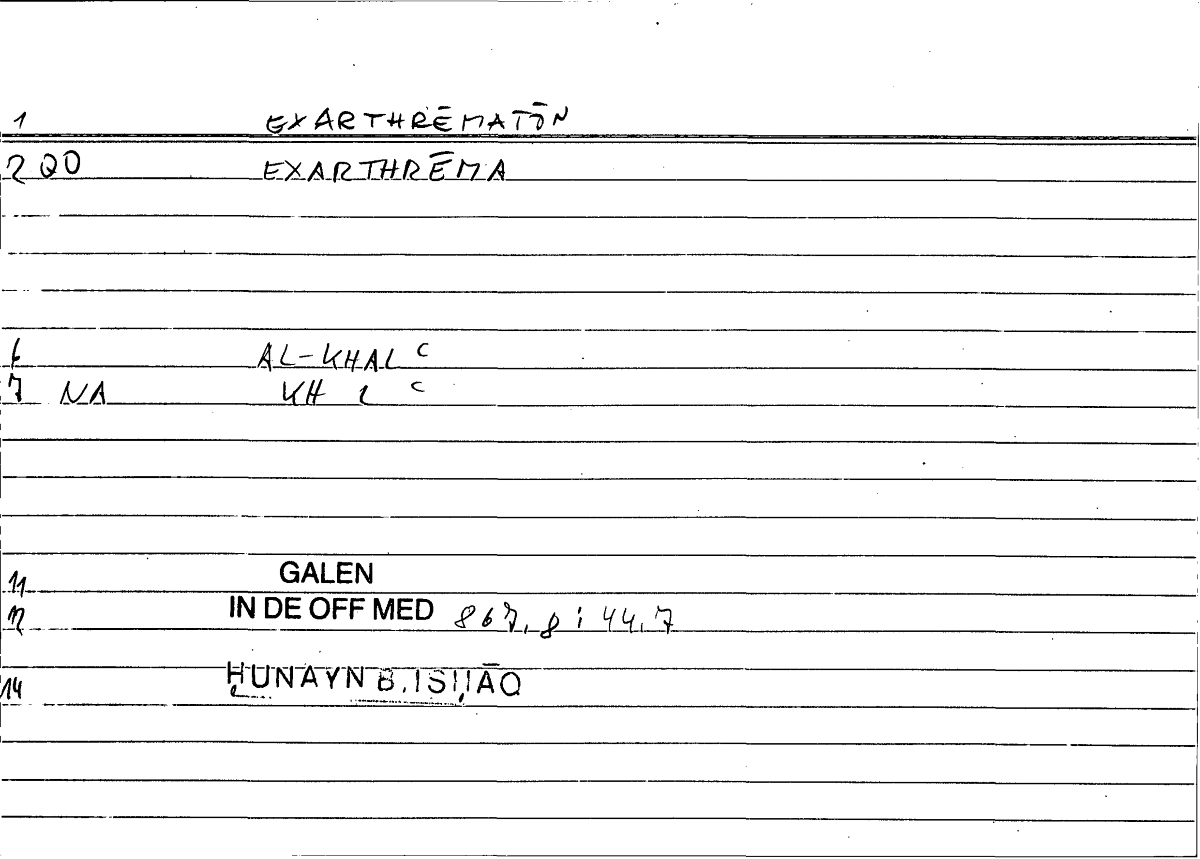 1 EXARTHRĒMATŌN
2 QO EXARTHRĒMA
6 AL-KHAL ᶜ
7 NA KH L ᶜ
11 GALEN
12 IN DE OFF MED 867,8 : 44,7
14 ḤUNAYN B. ISḤĀQ